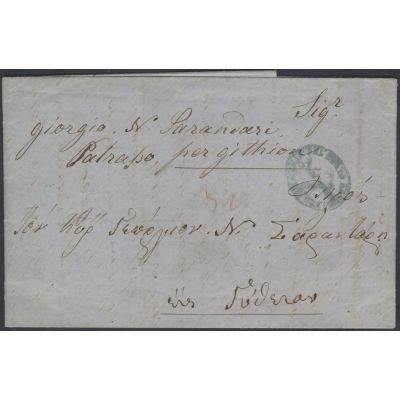 Sigr
giorgio. N. Sarandari.
Patrasso, per githion
Πρὸς
Τὸν Κύρ Γεώργιον. Ν. Σαραντάρη
εἰς Γύθειον